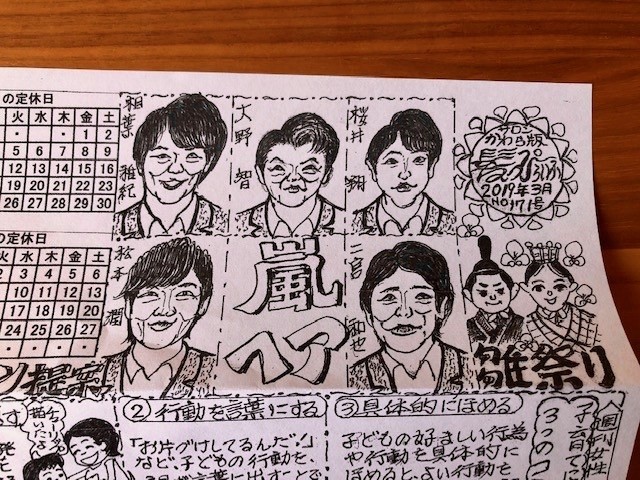 の定休日
火 水 木 金 土
・ ・ ・ 1 2
5 6 7 8 9
12 13 14 15 16
19 20 21 22 23
26 27 28 29 30
相葉 雅紀
大野 智
桜井 翔
サロン
かわら版
2019年3月
No171号
の定休日
火 水 木 金 土
2 3 4 5 6
10 11 12 13
17 18 19 20
24 25 26 27
松本 潤
嵐
ヘア
二宮 和也
雛祭り
ン提案
②行動を言葉にする
「お片づけしてるんだ。」
など、子どもの行動を、
③具体的にほめる
子どもの好ましい行為
や行動を具体的に
ほめると、よい行動を
子育てに
3つのコ
週刊女性